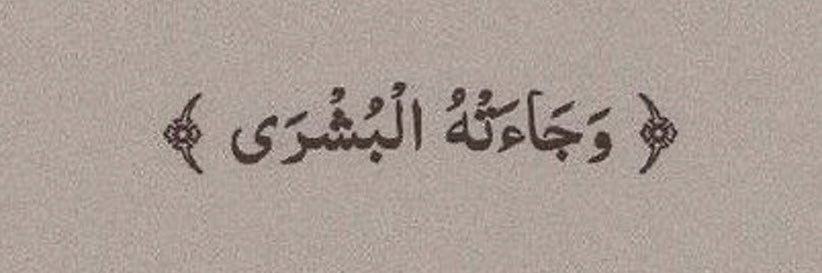 ﴿ وَجَاءَتْهُ الْبُشْرَى ﴾